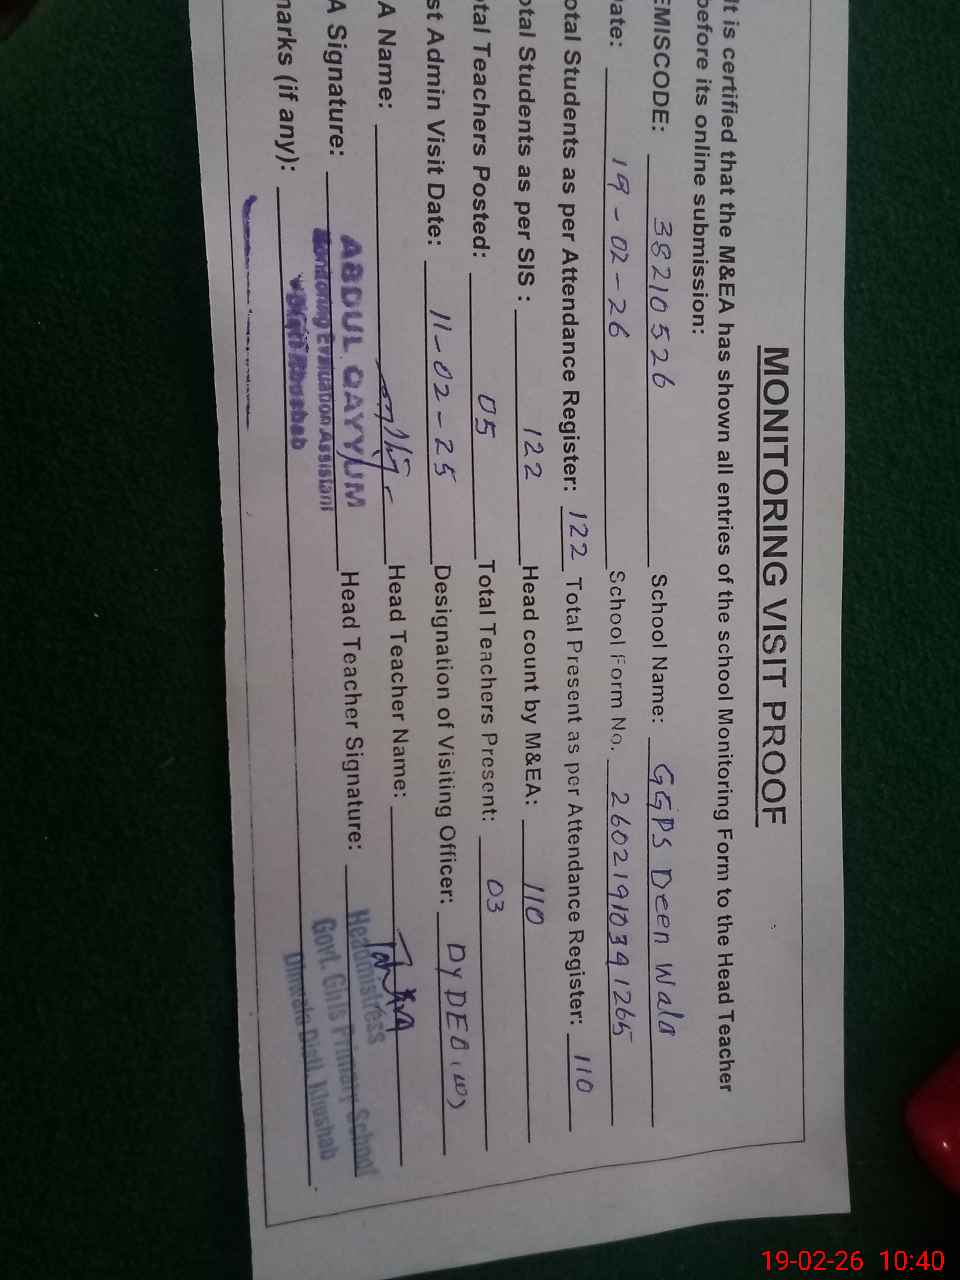 MONITORING VISIT PROOF
It is certified that the M&EA has shown all entries of the school Monitoring Form to the Head Teacher
before its online submission:
EMISCODE: 38210526 School Name: GGPS Deen Wala
Date: 19-02-26 School Form No. 2602191034 1265
otal Students as per Attendance Register: 122 Total Present as per Attendance Register: 110
otal Students as per SIS : 122 Head count by M&EA: 110
otal Teachers Posted: 05 Total Teachers Present: 03
st Admin Visit Date: 11-02-25 Designation of Visiting Officer: Dy DEO (W)
A Name: Head Teacher Name:
A Signature: ABDUL QAYYUM Head Teacher Signature: Headmistress
Monitoring Evaluation Assistant Govt. Girls Primary School
marks (if any): Distt Khushab Distt. Khushab
19-02-26 10:40